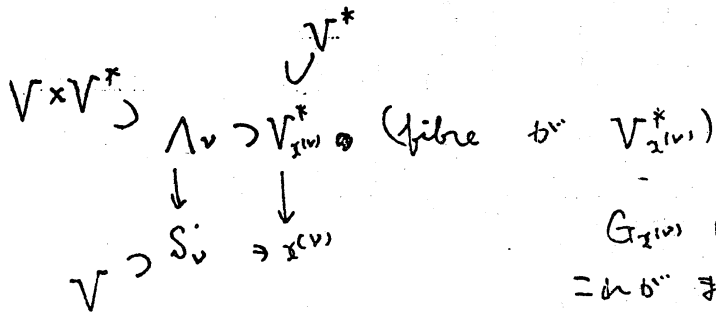 V*
V×V* ⊃ Λν ⊃ V*x(ν) (fibre が V*x(ν))
↓ ↓
V ⊃ S˙ν ∋ x(ν)
Gx(ν)
これが